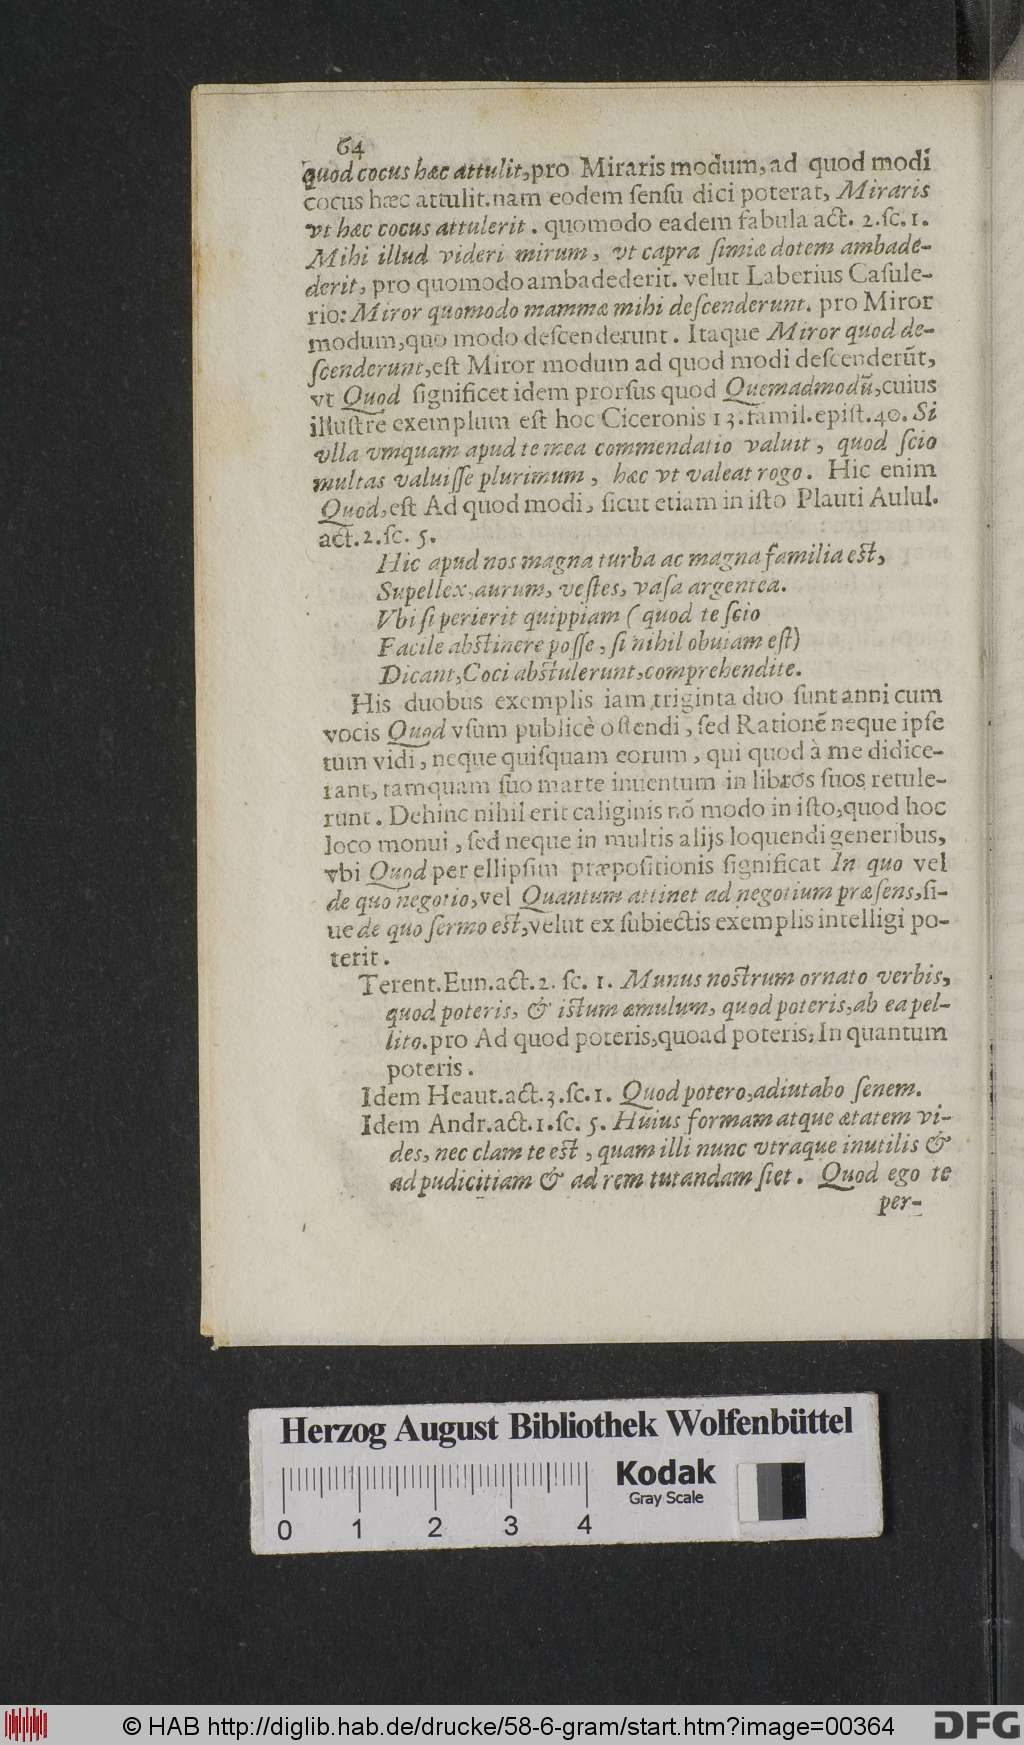 64
quod cocus hæc attulit, pro Miraris modum, ad quod modi
cocus hæc attulit. nam eodem ſenſu dici poterat, Miraris
vt hæc cocus attulerit. quomodo eadem fabula act. 2. ſc. 1.
Mihi illud videri mirum, vt capra ſimiæ dotem ambade-
derit, pro quomodo ambadederit. velut Laberius Caſule-
rio: Miror quomodo mammæ mihi deſcenderunt. pro Miror
modum, quo modo deſcenderunt. Itaque Miror quod de-
ſcenderunt, eſt Miror modum ad quod modi deſcenderūt,
vt Quod ſignificet idem prorſus quod Quemadmodū, cuius
illuſtre exemplum eſt hoc Ciceronis 13. famil. epiſt. 40. Si
vlla vmquam apud te mea commendatio valuit, quod ſcio
multas valuiſſe plurimum, hæc vt valeat rogo. Hic enim
Quod, eſt Ad quod modi, ſicut etiam in iſto Plauti Aulul.
act. 2. ſc. 5.
Hic apud nos magna turba ac magna familia eſt,
Supellex, aurum, veſtes, vaſa argentea.
Vbi ſi perierit quippiam (quod te ſcio
Facile abſtinere poſſe, ſi nihil obuiam eſt)
Dicant, Coci abſtulerunt, comprehendite.
His duobus exemplis iam triginta duo ſunt anni cum
vocis Quod vſum publicè oſtendi, ſed Rationē neque ipſe
tum vidi, neque quiſquam eorum, qui quod à me didice-
rant, tamquam ſuo marte inuentum in libros ſuos retule-
runt. Dehinc nihil erit caliginis nō modo in iſto, quod hoc
loco monui, ſed neque in multis alijs loquendi generibus,
vbi Quod per ellipſim præpoſitionis ſignificat In quo vel
de quo negotio, vel Quantum attinet ad negotium præſens, ſi-
ue de quo ſermo eſt, velut ex ſubiectis exemplis intelligi po-
terit.
Terent. Eun. act. 2. ſc. 1. Munus noſtrum ornato verbis,
quod poteris, & iſtum æmulum, quod poteris, ab ea pel-
lito. pro Ad quod poteris, quoad poteris, In quantum
poteris.
Idem Heaut. act. 3. ſc. 1. Quod potero, adiutabo ſenem.
Idem Andr. act. 1. ſc. 5. Huius formam atque ætatem vi-
des, nec clam te eſt, quam illi nunc vtraque inutilis &
ad pudicitiam & ad rem tutandam ſiet. Quod ego te
per-
Herzog August Bibliothek Wolfenbüttel
Kodak
Gray Scale
0 1 2 3 4
© HAB http://diglib.hab.de/drucke/58-6-gram/start.htm?image=00364
DFG